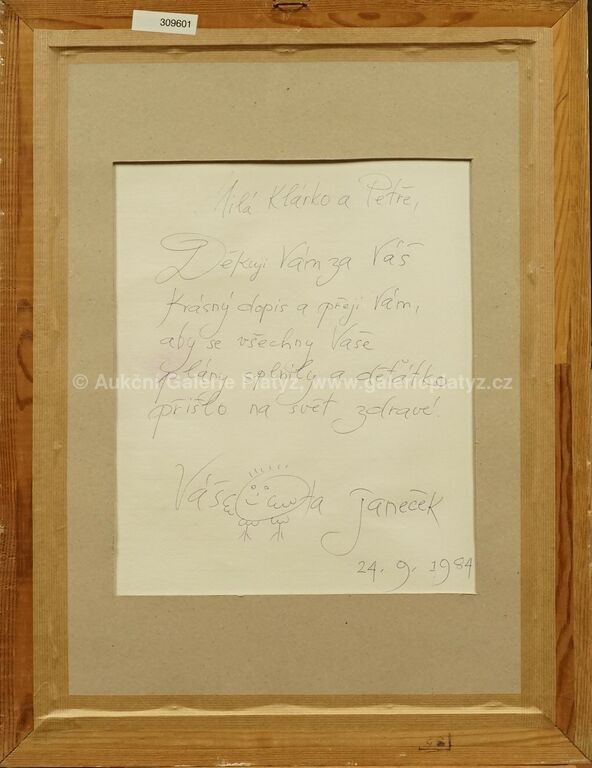 309601
Milá Klárko a Petře,
Děkuji Vám za Váš
krásný dopis a přeji Vám,
aby se všechny Vaše
plány splnily a děťátko
© Aukční Galerie Platýz, www.galerieplatyz.cz
přišlo na svět zdravé!
Váš ta Janeček
24. 9. 1984